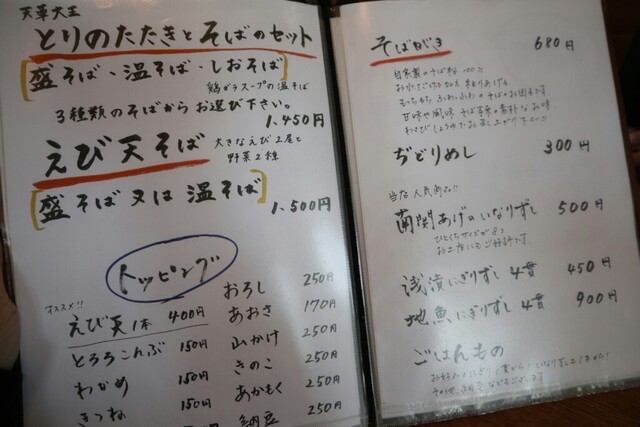 天草大王
とりのたたきとそばのセット
盛そば・温そば・しおそば
鶏ガラスープの温そば
3種類のそばからお選び下さい。
1.450円
えび天そば
大きなえび2尾と
野菜2種
盛そば又は温そば
1.500円
トッピング
オススメ!!
えび天1本 400円
とろろこんぶ 150円
わかめ 150円
きつね 150円
おろし 250円
あおさ 170円
山かけ 250円
きのこ 250円
あかもく 250円
納豆 250円
そばがき 680円
もっちもち、ふわっふわのそばのお団子です
わさびしょうゆでお召し上がり下さい
ぢどりめし 300円
当店人気商品!!
南関あげのいなりずし 500円
ひとくちサイズが8コ
お土産にもご好評です。
浅漬にぎりずし 4貫 450円
地魚にぎりずし 4貫 900円
ごはんもの